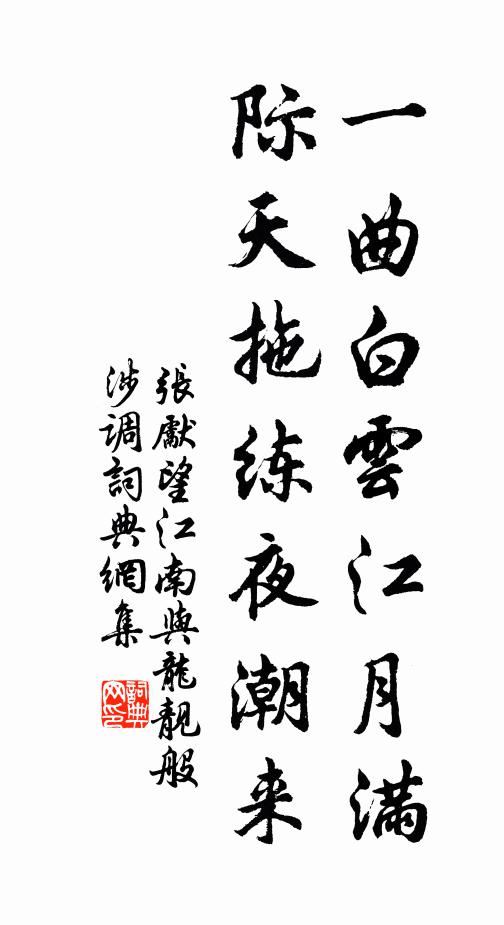 一曲白雲江月满
际天拖练夜潮来
張獻望江南與龍靚般
涉调詞典網集
詞典
网印